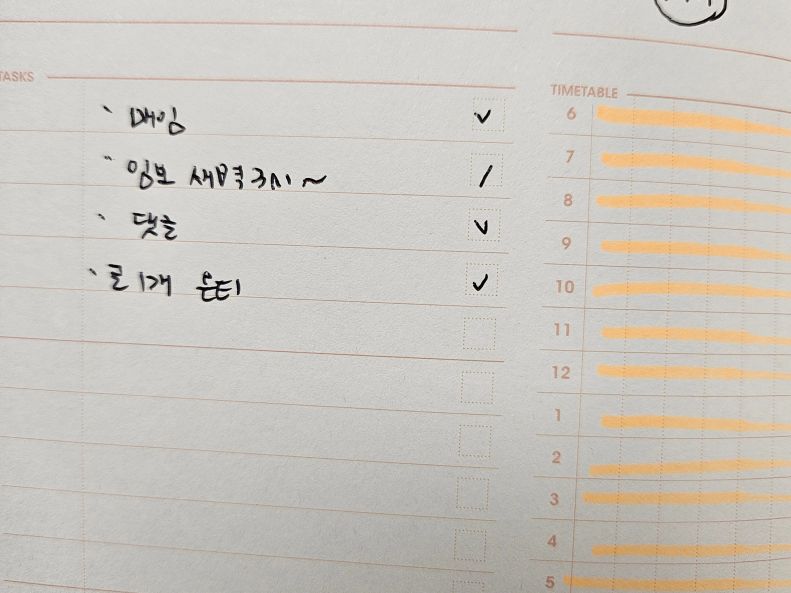 TASKS
· 매임 v
· 임보 새벽 3시~ /
· 댓글 v
· 글 1개 몬티 v
TIMETABLE
6
7
8
9
10
11
12
1
2
3
4
5